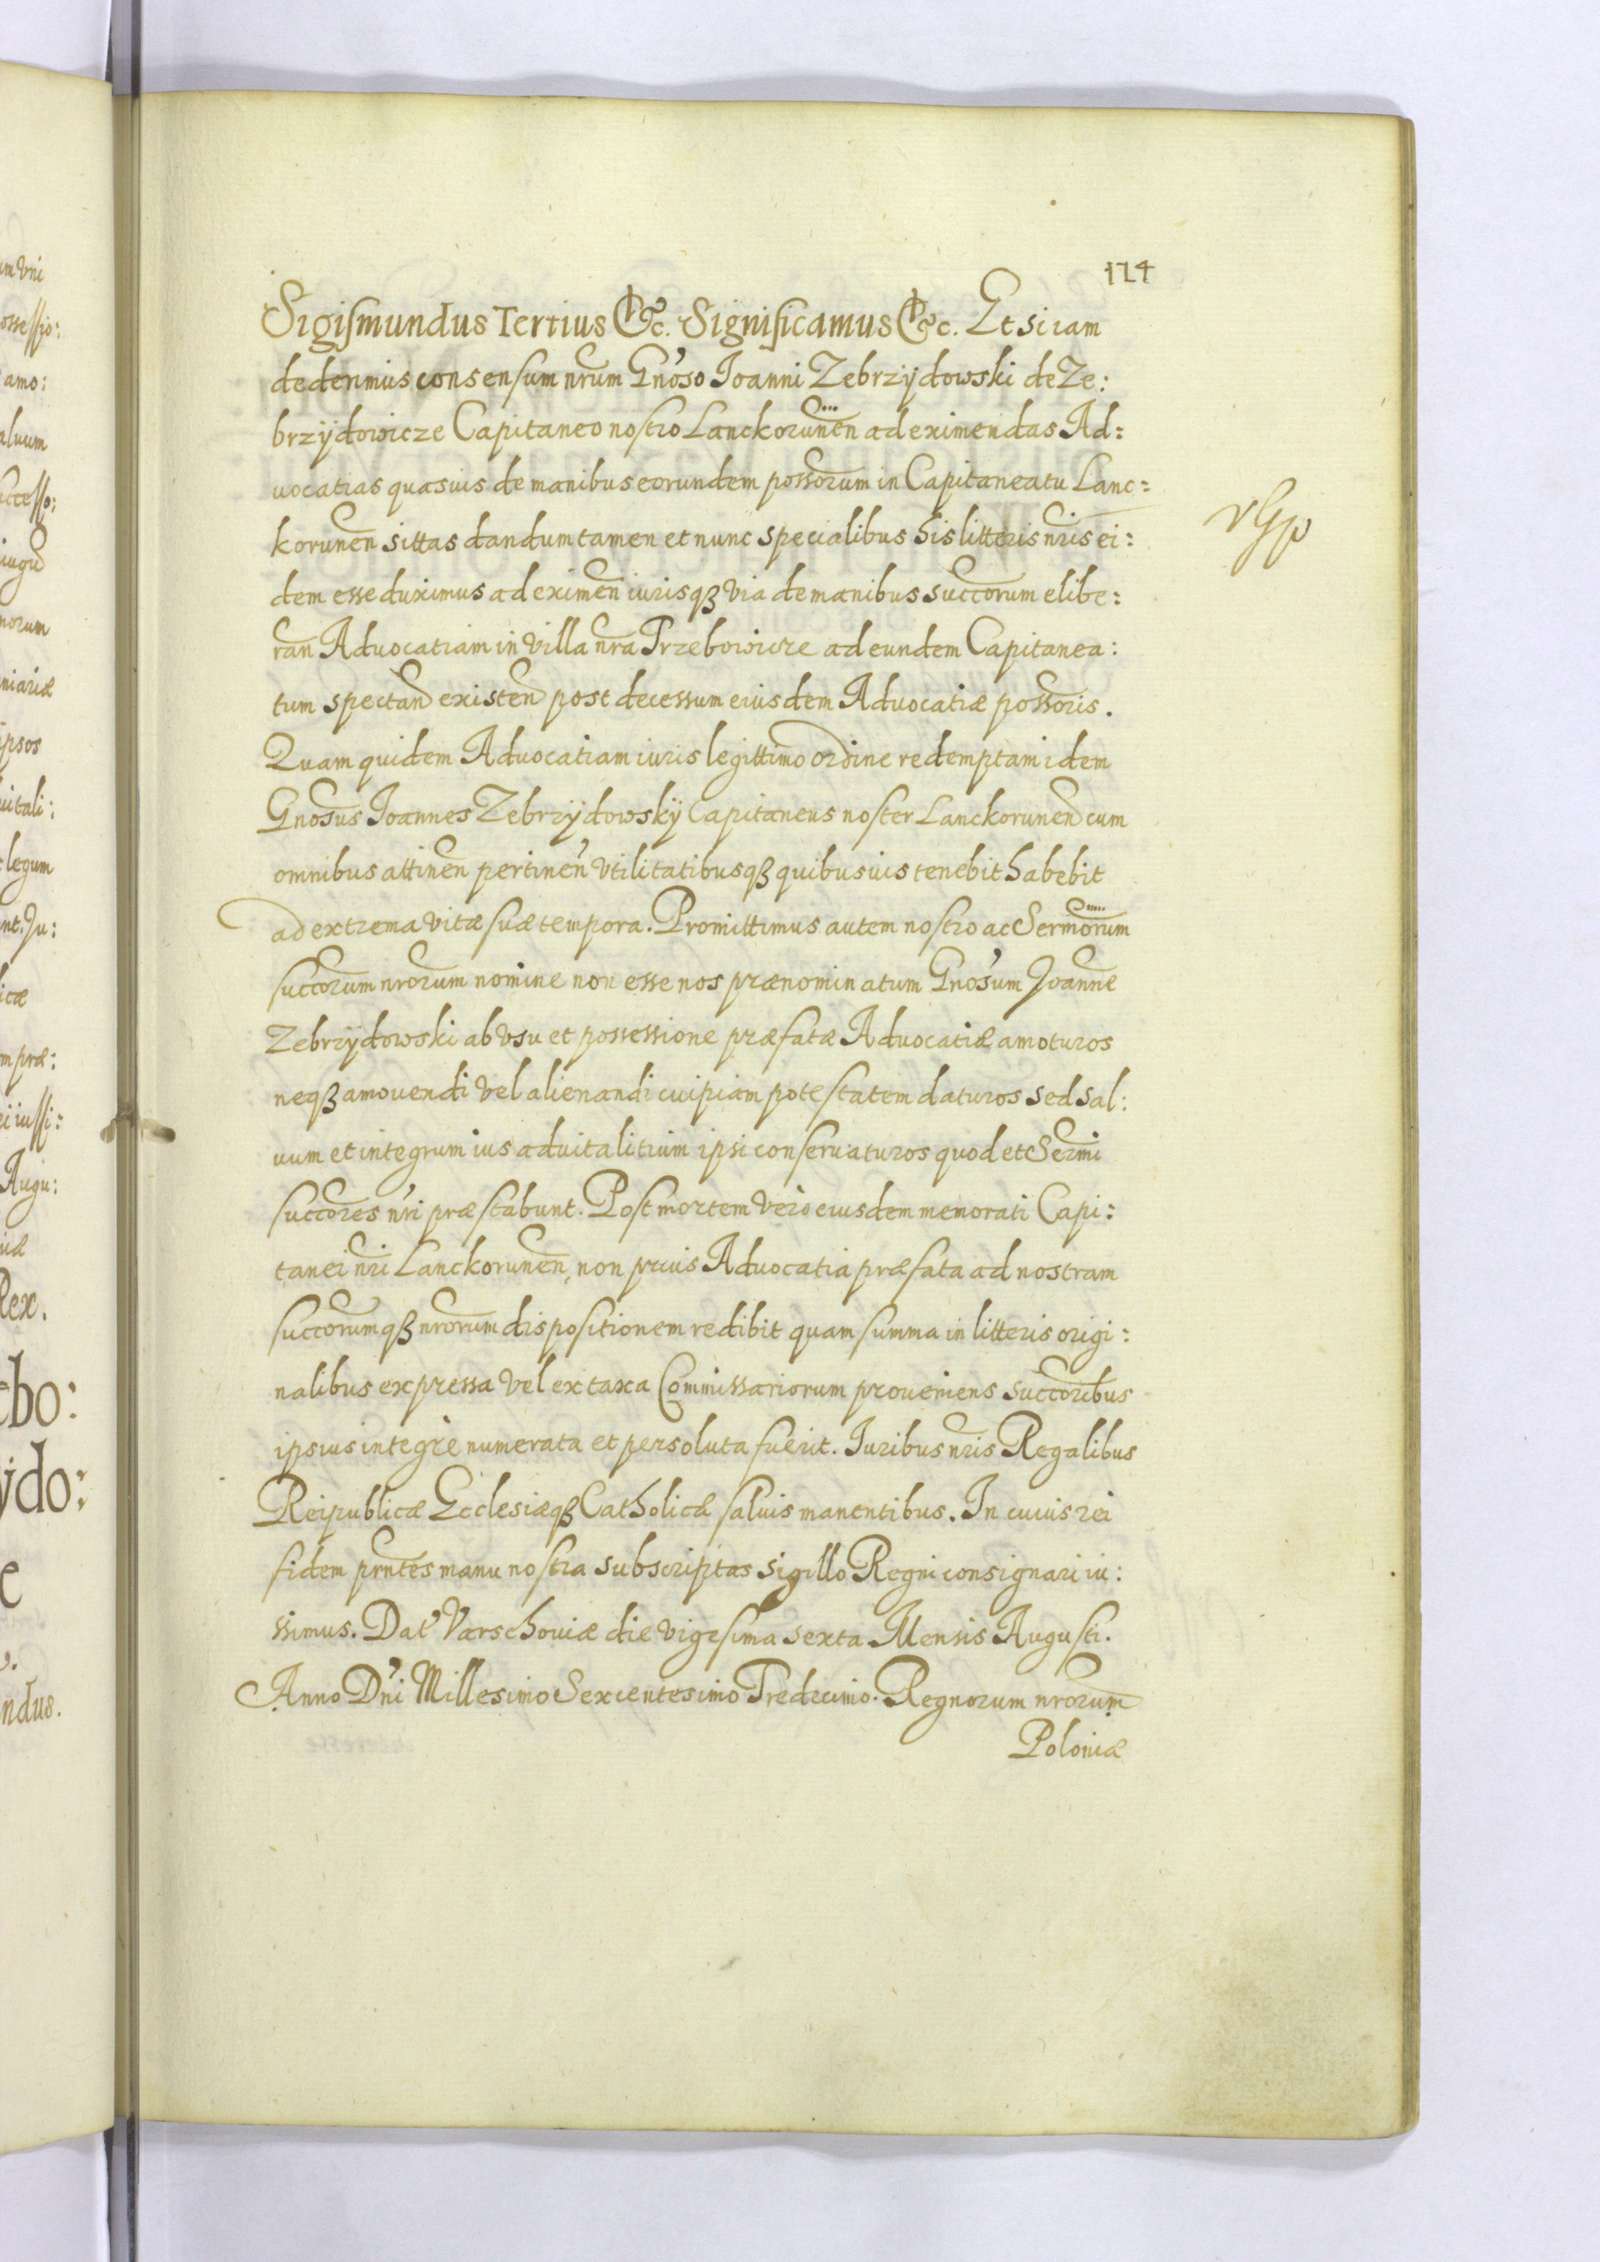 174
Sigismundus Tertius &c. Significamus &c. Etsi iam
dederimus consensum nrum Gnoso Ioanni Zebrzÿdowski de Ze:
brzÿdowicze Capitaneo nostro Lanckorunen ad eximendas Ad:
uocatias quasuis de manibus eorundem possorum in Capitaneatu Lanc:
korunen sittas dandum tamen et nunc specialibus his litteris nris ei:
dem esse duximus ad eximen iurisqꝫ via de manibus succorum elibe:
ran Aduocatiam in villa nra Przebowicze ad eundem Capitanea:
tum spectan existen post decessum eiusdem Aduocatiæ possoris.
Quam quidem Aduocatiam iuris legittimo ordine redemptam idem
Gnosus Ioannes Zebrzÿdowskÿ Capitaneus noster Lanckorunen cum
omnibus attinen pertinen vtilitatibusqꝫ quibusuis tenebit habebit
ad extrema vitæ suæ tempora. Promittimus autem nostro ac Sermorum
succorum nrorum nomine non esse nos prænominatum Gnosum Joanne
Zebrzÿdowski ab vsu et possessione præfatæ Aduocatiæ amoturos
neqꝫ amouendi vel alienandi cuipiam potestatem daturos sed sal:
uum et integrum ius aduitalitium ipsi conseruaturos quod et Sermi
succores nri præstabunt. Post mortem vero eiusdem memorati Capi:
tanei nri Lanckorunen, non prius Aduocatia præfata ad nostram
succorumqꝫ nrorum dispositionem redibit quam summa in litteris origi:
nalibus expressa vel ex taxa Commissariorum proueniens succoribus
ipsius integre numerata et persoluta fuerit. Iuribus nris Regalibus
Reipublicæ Ecclesiæqꝫ Catholicæ saluis manentibus. In cuius rei
fidem prntes manu nostra subscriptas sigillo Regni consignari iu:
ssimus. Dat Varschouiæ die vigesima sexta Mensis Augusti.
Anno Dni Millesimo Sexcentesimo Tredecimo. Regnorum nrorum
Poloniæ